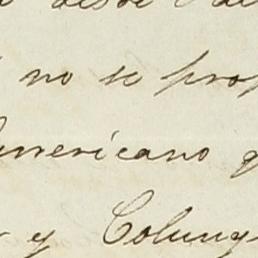 desde
no se prop
Americano q
y Coluny